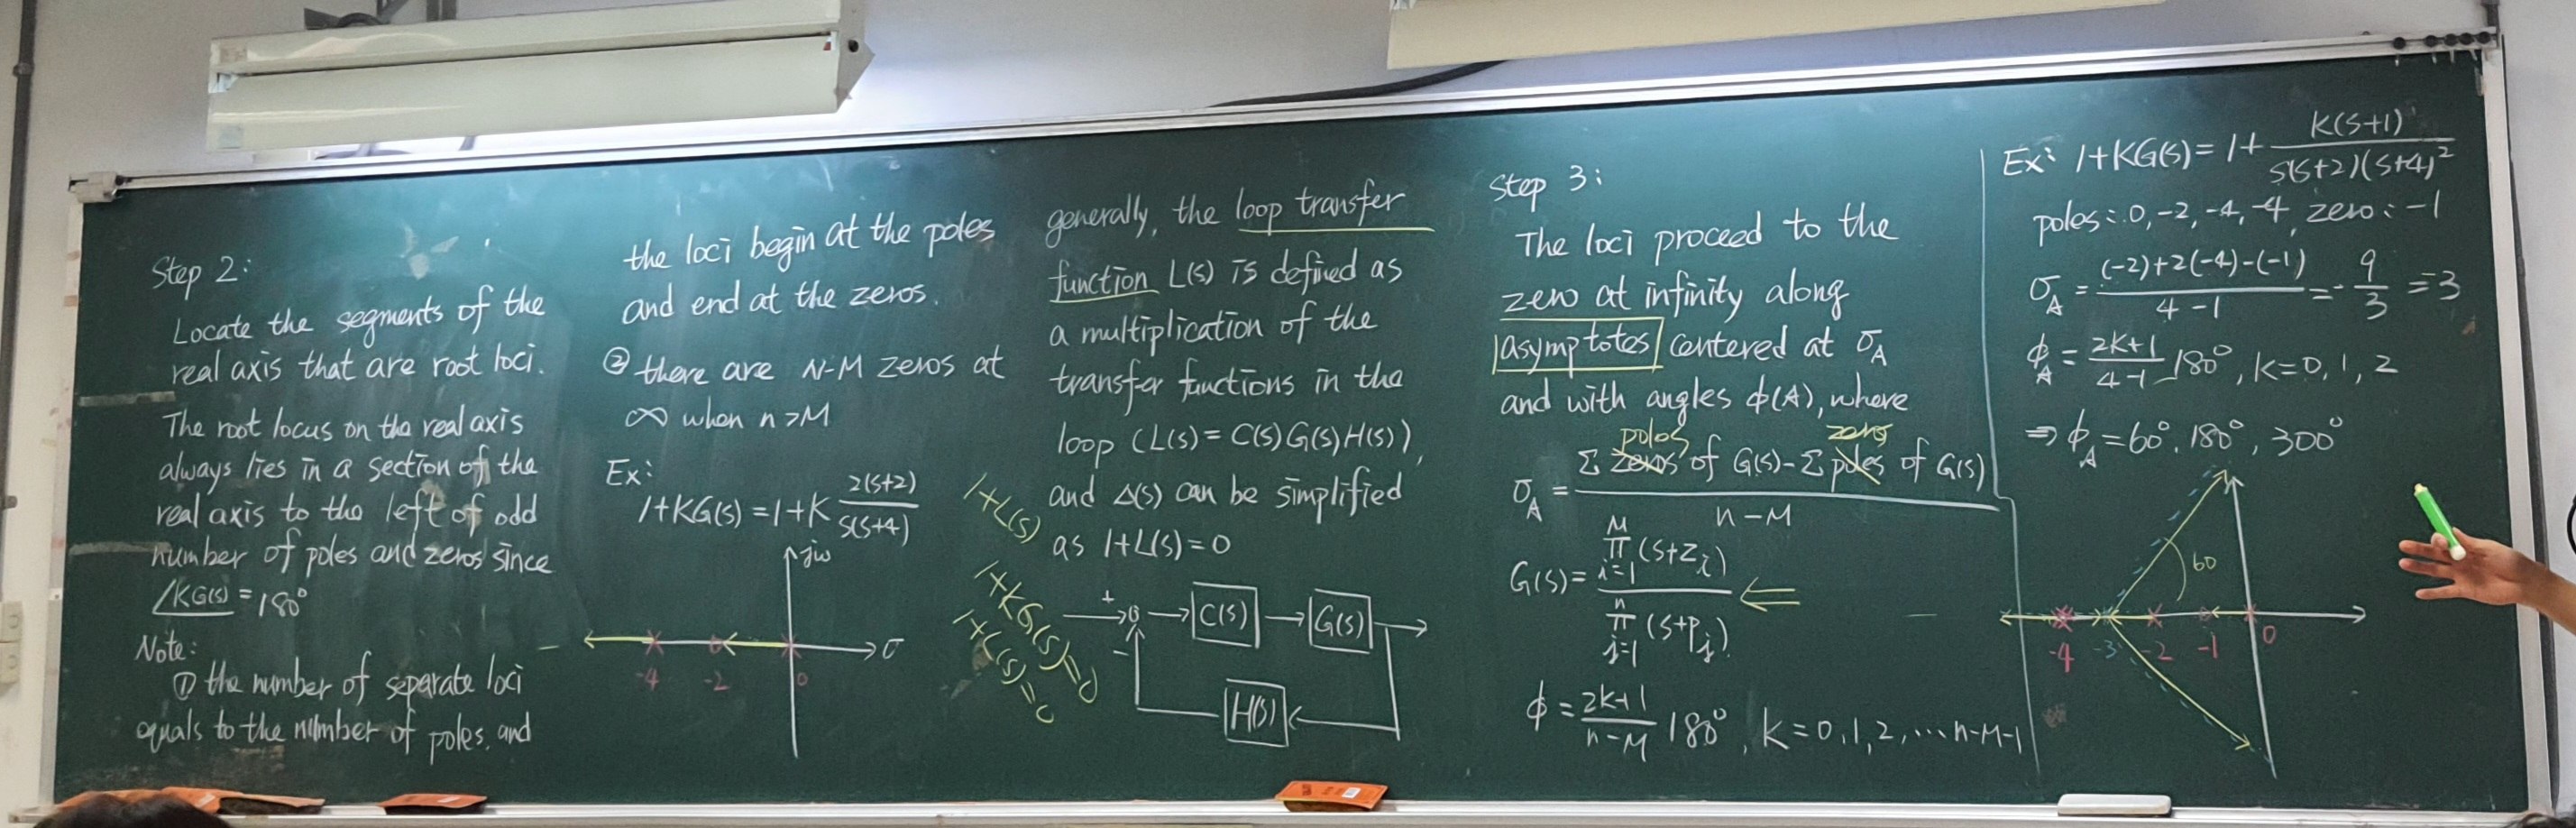 Step 2:
Locate the segments of the
real axis that are root loci.
The root locus on the real axis
always lies in a section of the
real axis to the left of odd
number of poles and zeros since
∠KG(s) = 180°
Note:
① the number of separate loci
equals to the number of poles, and
the loci begin at the poles
and end at the zeros.
② there are N-M zeros at
∞ when n>M
Ex:
1+KG(s) = 1+K 2(s+2) / s(s+4)
jω
σ
-4 -2 0
generally, the loop transfer
function L(s) is defined as
a multiplication of the
transfer functions in the
loop (L(s) = C(s)G(s)H(s)),
and Δ(s) can be simplified
as 1+L(s)=0
1+L(s)
1+KG(s)=0
1+C(s)=0
+ C(s) G(s)
-
H(s)
Step 3:
The loci proceed to the
zero at infinity along
asymptotes centered at σ_A
and with angles ϕ(A), where
poles zeros
σ_A = Σ zeros of G(s) - Σ poles of G(s) / n-M
G(s) = ∏_{i=1}^{M} (s+z_i) / ∏_{j=1}^{n} (s+p_j)
ϕ = 2k+1 / n-M 180°, k=0,1,2,...n-M-1
Ex: 1+KG(s) = 1+ K(s+1) / s(s+2)(s+4)²
poles: 0, -2, -4, -4, zero: -1
σ_A = (-2)+2(-4)-(-1) / 4-1 = - 9/3 = 3
ϕ_A = 2k+1 / 4-1 180°, k=0, 1, 2
⇒ ϕ_A = 60°, 180°, 300°
60
-4 -3 -2 -1 0